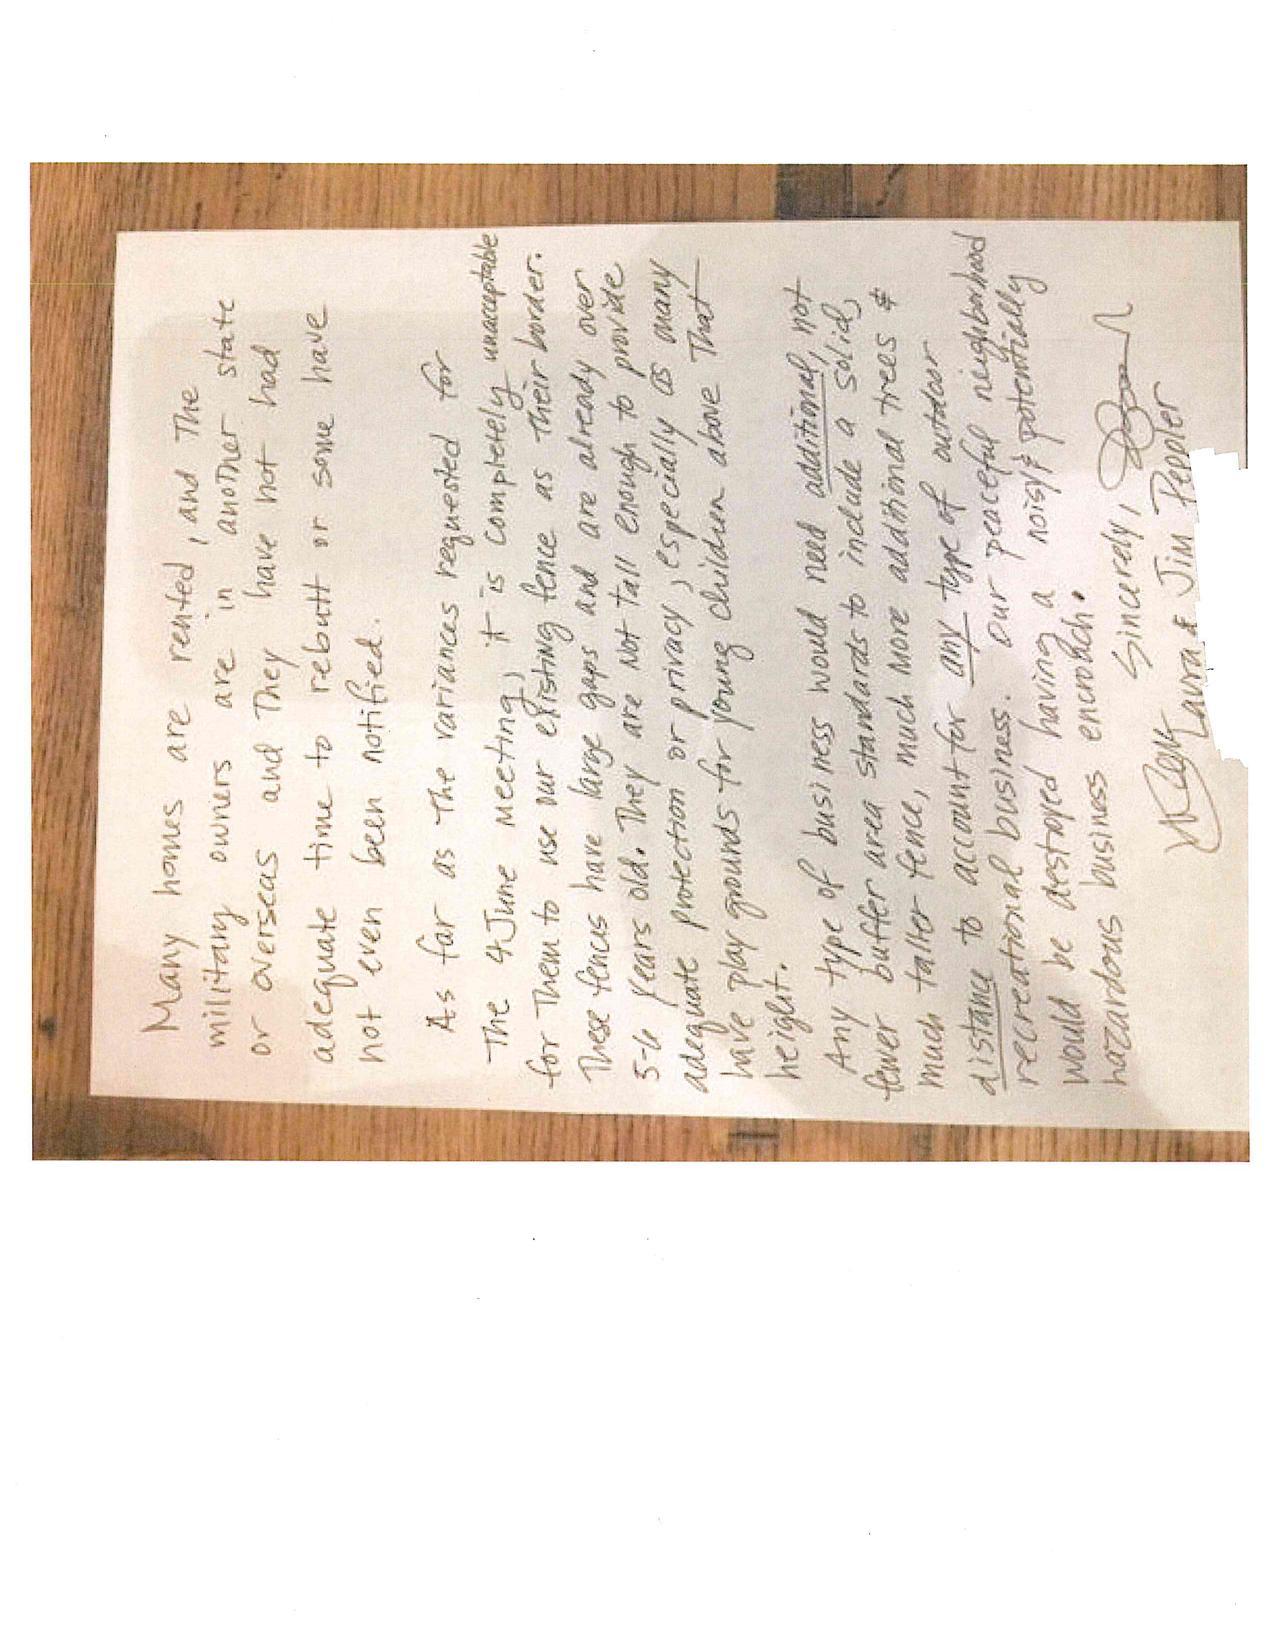 Many homes are rented, and The
military owners are in another state
or overseas and They have not had
adequate time to rebutt or some have
not even been notified.
As far as The variances requested for
The 4 June meeting, it is completely unacceptable
for Them to use our existing fence as Their border.
These fences have large gaps and are already over
5-6 years old. They are Not tall enough to provide
adequate protection or privacy, especially as many
have play grounds for young children above That
height.
Any type of business would need additional, not
fewer buffer area standards to include a solid,
much taller fence, much More additional trees &
distance to account for any type of outdoor
recreational business. Our peaceful neighborhood
would be destroyed having a noisy & potentially
hazardous business encroach.
Sincerely,
Laura & Jim Peppler